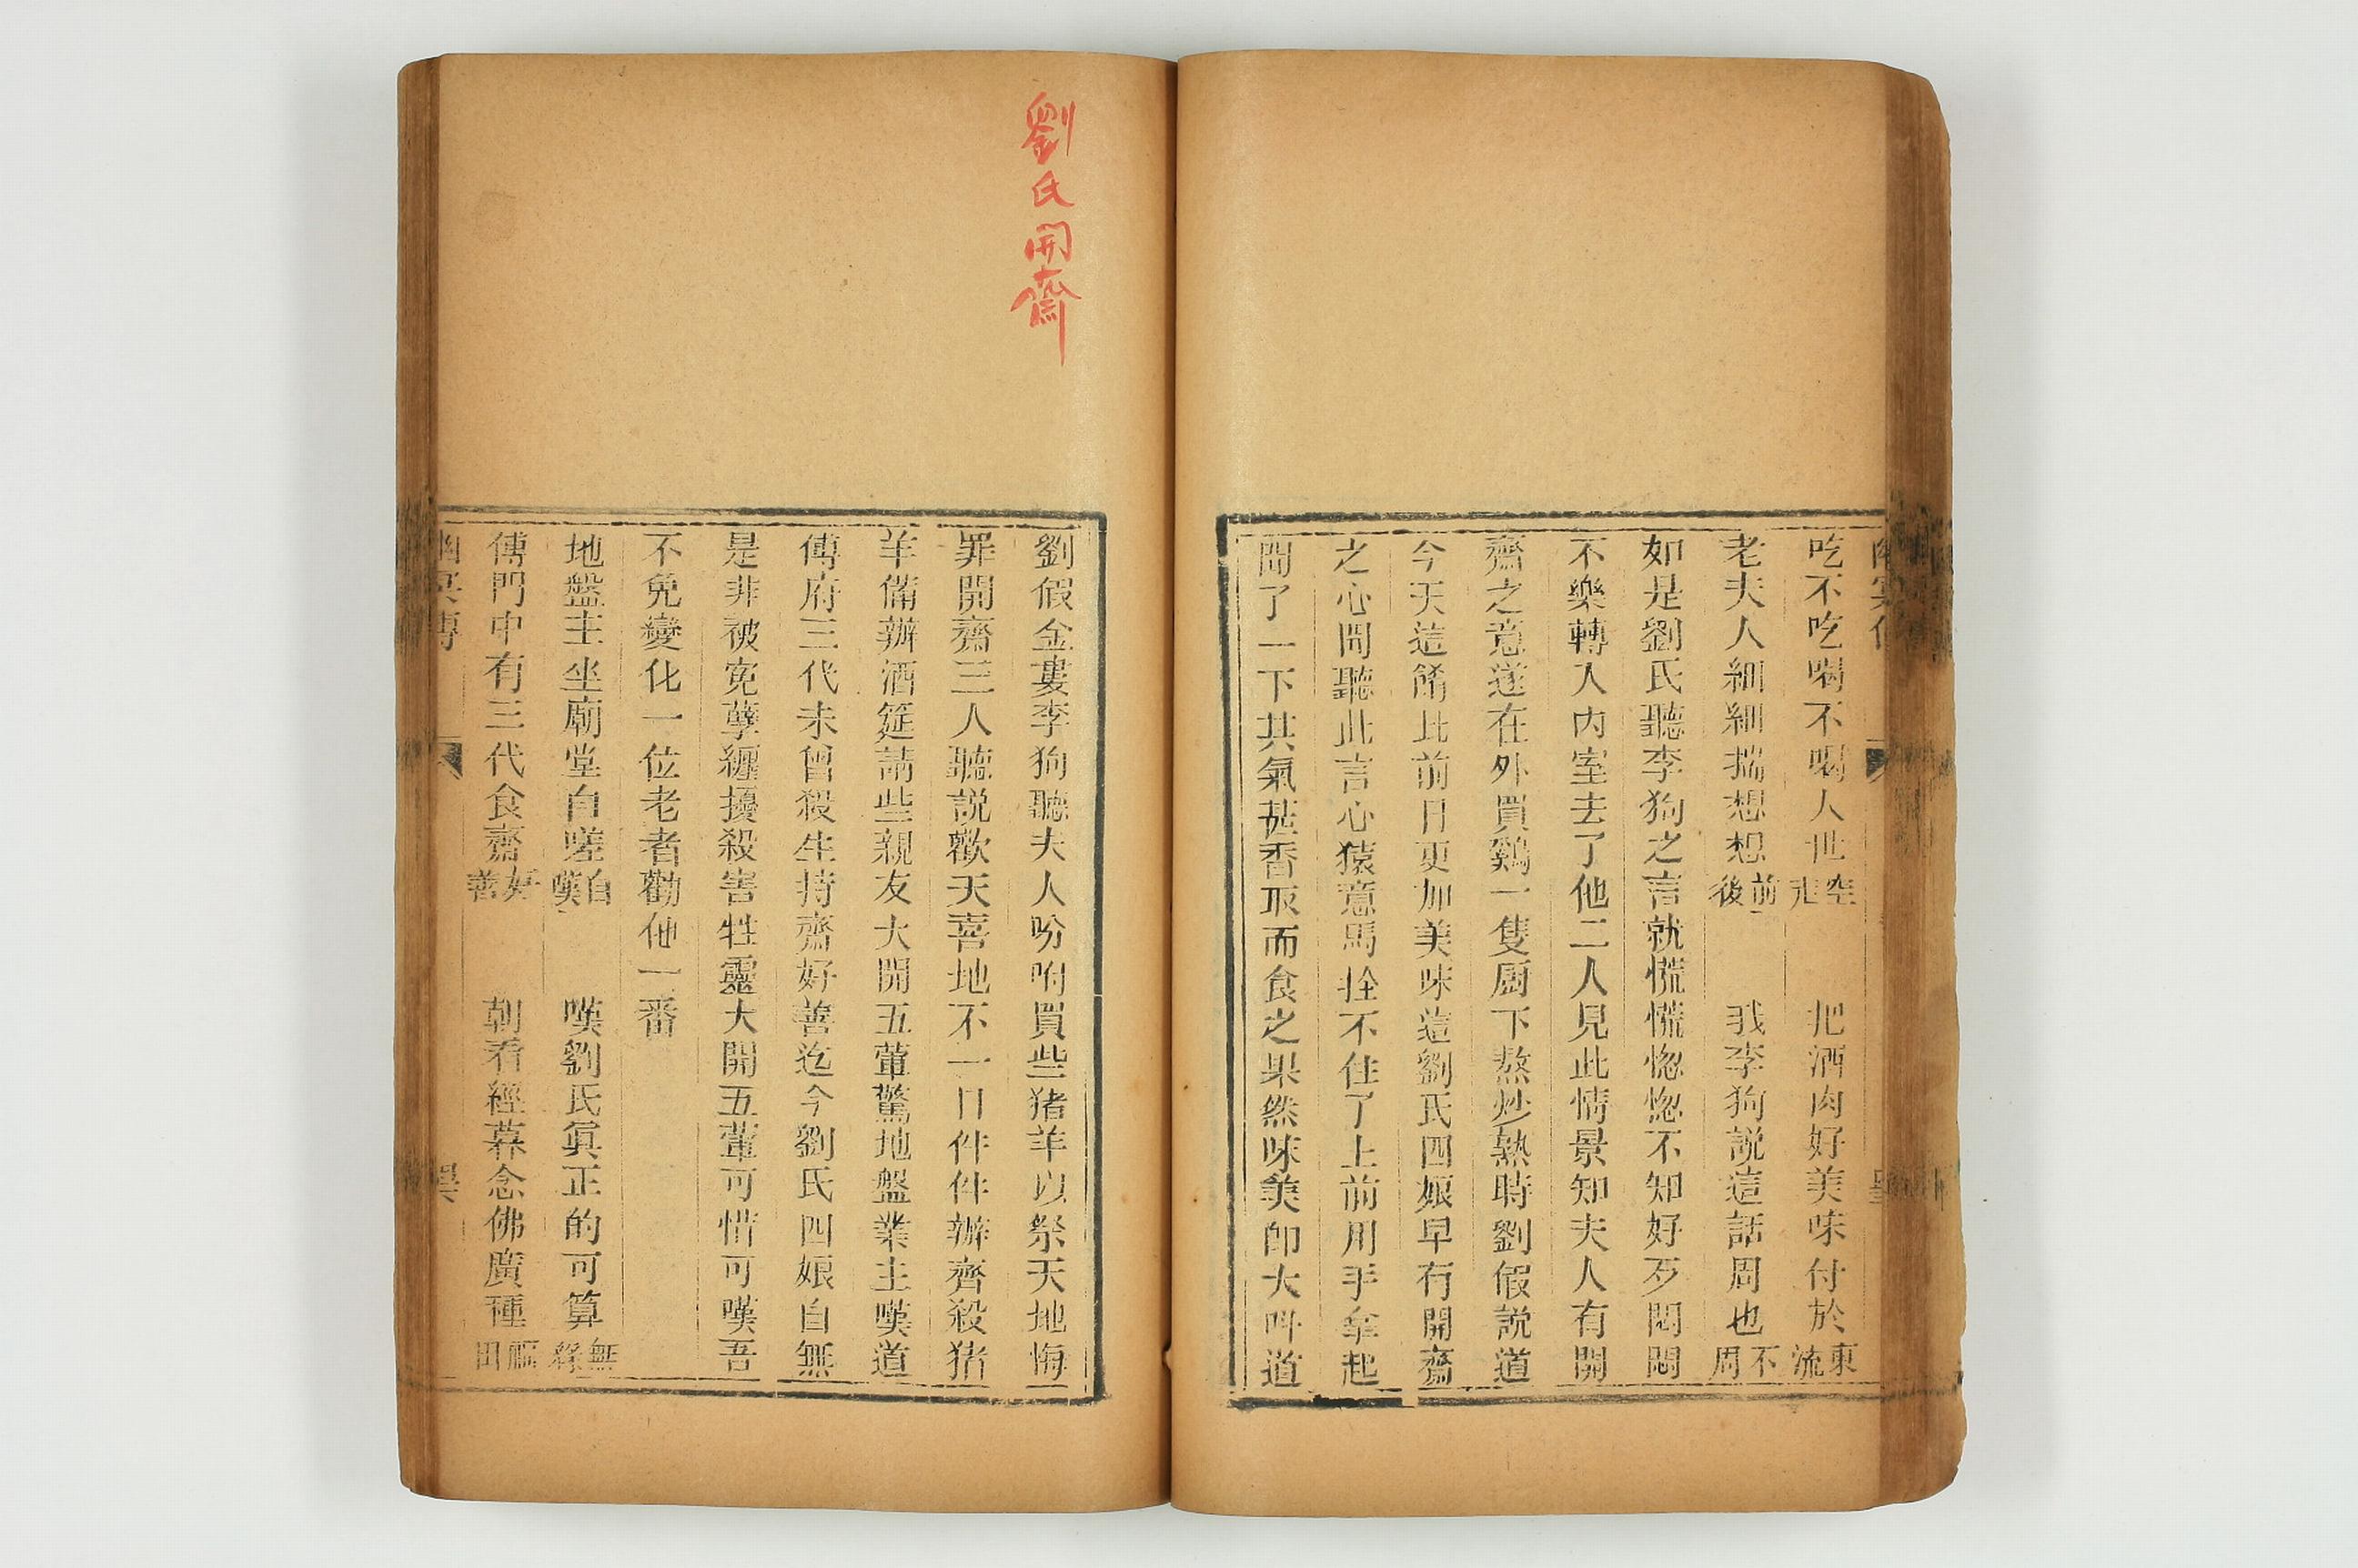 吃不吃喝不喝人世空走 把酒肉好美味付於東流
老夫人細細揣想想前後 我李狗説這話周也不周
如是劉氏聽李狗之言就慌慌惚惚不知好歹悶悶
不樂轉入内室去了他二人見此情景知夫人有開
齋之意遂在外買鷄一隻厨下熬炒熟時劉假説道
今天這餚比前日更加美味這劉氏四娘早有開齋
之心間聽此言心猿意馬拴不住了上前用手拿起
聞了一下其氣甚香取而食之果然味美即大呌道
劉氏開齋
劉假金婁李狗聽夫人吩咐買些猪羊以祭天地悔
罪開齋三人聽説歡天喜地不一日件件辦齊殺猪
羊備辦酒筵請些親友大開五葷驚地盤業主嘆道
傅府三代未曾殺生持齋好善迄今劉氏四娘自無
是非被寃孽纒擾殺害牲靈大開五葷可惜可嘆吾
不免變化一位老者勸他一番
地盤主坐廟堂自嗟自嘆 嘆劉氏眞正的可算無緣
傅門中有三代食齋好善 朝看經暮念佛廣種福田
幽冥傳